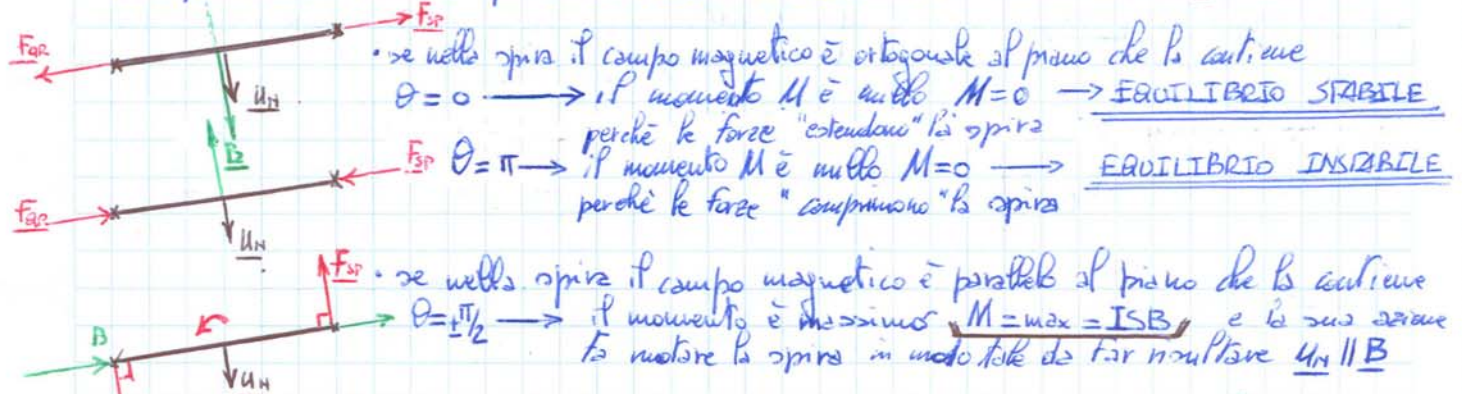 F_SP
F_QR
• se nella spira il campo magnetico è ortogonale al piano che la contiene
u_N
θ = 0 → il momento M è nullo M=0 → EQUILIBRIO STABILE
perchè le forze "estendono" la spira
B
F_SP θ = π → il momento M è nullo M=0 → EQUILIBRIO INSTABILE
F_QR
perchè le forze "comprimono" la spira
u_N
F_SP • se nella spira il campo magnetico è parallelo al piano che la contiene
θ = ±π/2 → il momento è massimo M = max = ISB e la sua azione
B
fa ruotare la spira in modo tale da far risultare u_N || B
u_N